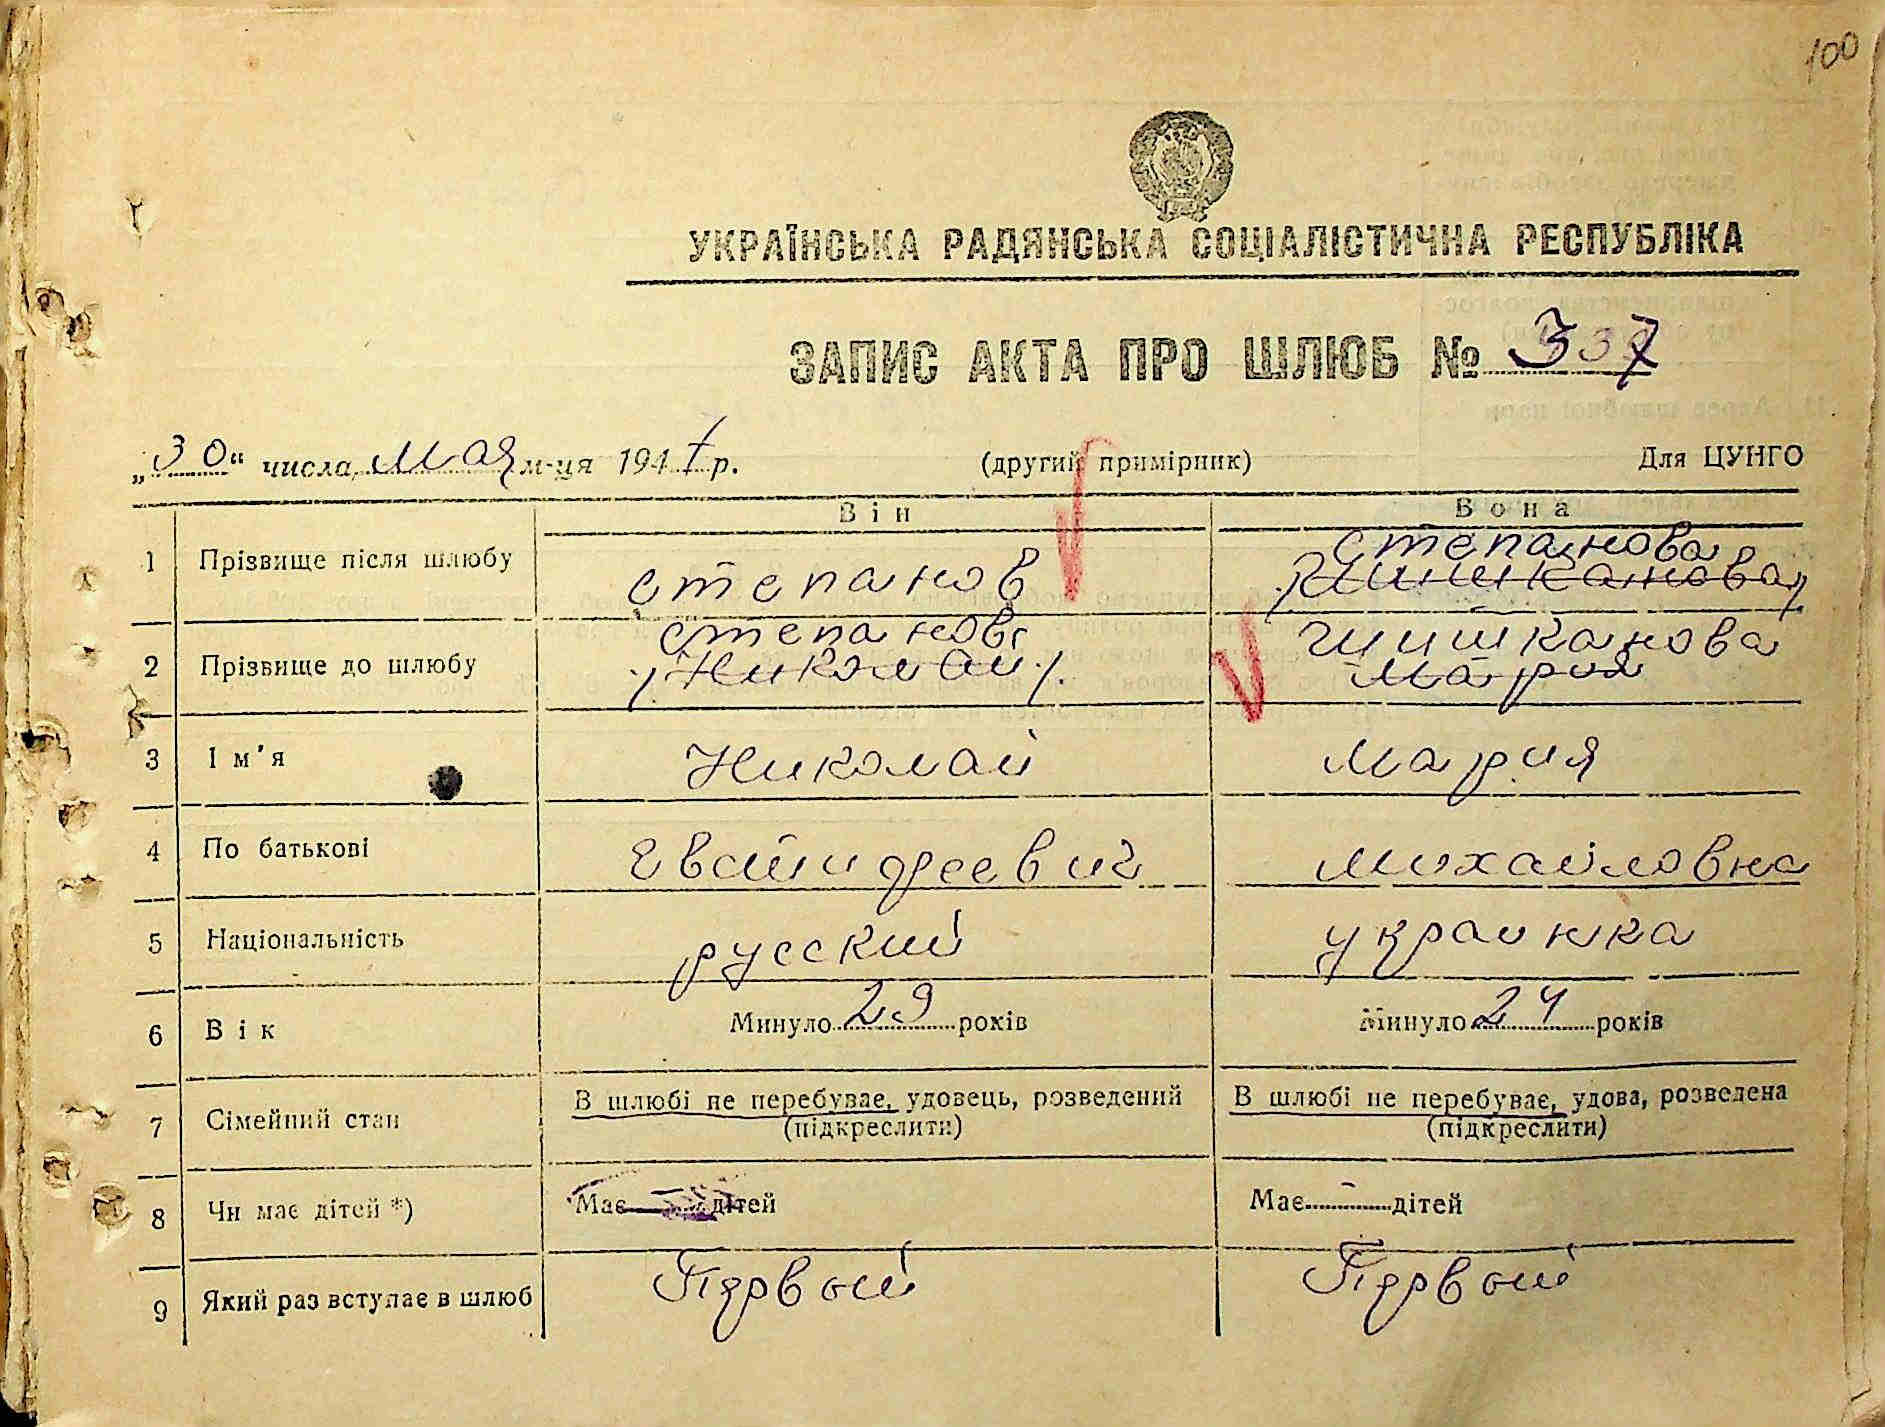 100
УКРАЇНСЬКА РАДЯНСЬКА СОЦІАЛІСТИЧНА РЕСПУБЛІКА
ЗАПИС АКТА ПРО ШЛЮБ № 337
„30" числа мая м-ця 1947 р. (другий примірник) Для ЦУНГО
Він Вона
1 Прізвище після шлюбу Степанов Степанова
Шишканова
2 Прізвище до шлюбу Степанов Шишканова
Николай Мария
3 Ім'я Николай Мария
4 По батькові Михайловна
5 Національність русский украинка
6 Вік Минуло 29 років Минуло 24 років
7 Сімейний стан В шлюбі не перебуває, удовець, розведений В шлюбі не перебуває, удова, розведена
(підкреслити) (підкреслити)
8 Чи має дітей *) Має дітей Має - дітей
9 Який раз вступає в шлюб Первый Первый